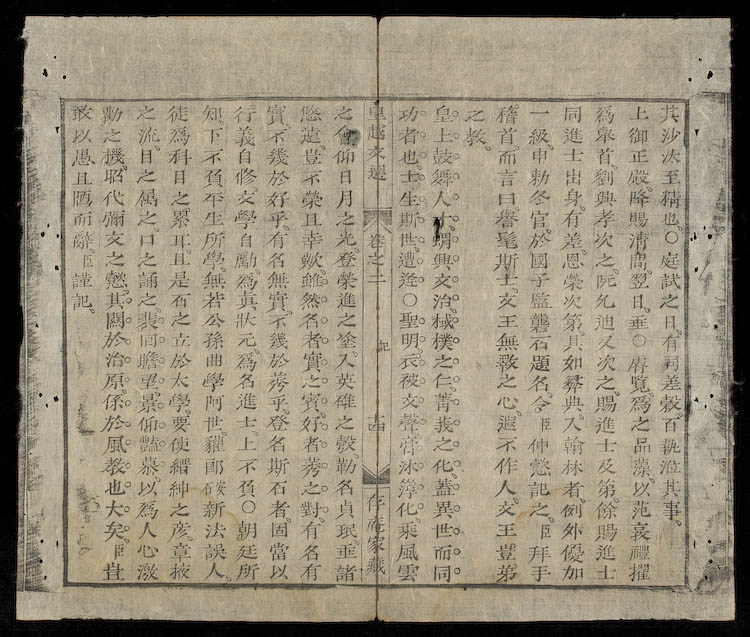 其沙汰至精也。○庭試之日。有司差穀。百執涖其事。
上御正殿。降賜淸問。翌日。垂○睿覽。爲之品藻。以范禮擢
爲舉首。劉興孝次之。阮允迪又次之。賜進士及第。餘賜進士
同進士出身。有差。恩榮次第。具如彞典。入翰林者。例外優加
一級。申勅冬官。於國子監礱石題名。令臣仲懿記之。臣拜手
稽首而言曰。譽髦斯士。文王無斁之心。遐不作人。文王豈弟
之敎。
皇上鼓舞人才。興文治。棫樸之仁。菁莪之化。蓋異世而同
功者也。士生斯世。遭逢○聖明。衣被文聲。膏沐淳化。乘風雲
皇越文選 卷之二 記 十四 存庵家藏
之會。仰日月之光。登榮進之塗。入英雄之彀。勒名貞珉。垂諸
悠遠。豈不榮且幸歟。雖然。名者實之賓。好者莠之對。有名有
實。不幾於好乎。有名無實。不幾於莠乎。登名斯石者。固當以
行義自修。文學自勵。爲眞狀元。爲名進士。上不負○朝廷所
知。下不負平生所學。無若公孫曲學阿世。安石新法誤人。
徒爲科目之累耳。且是石之立於太學。要使縉紳之彥。章掖
之流。目之屬之。口之誦之。裴回瞻望。景仰豔慕。以爲人心激
勸之機。昭代彌文之懿。其關於治原。係於風敎也大矣。臣豈
敢以愚且陋而辭。臣謹記。